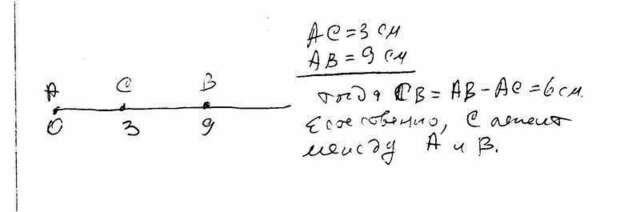 AC=3 см
AB=9 см
A C B
0 3 9
тогда CB=AB-AC=6см.
Естественно, C лежит
между A и B.